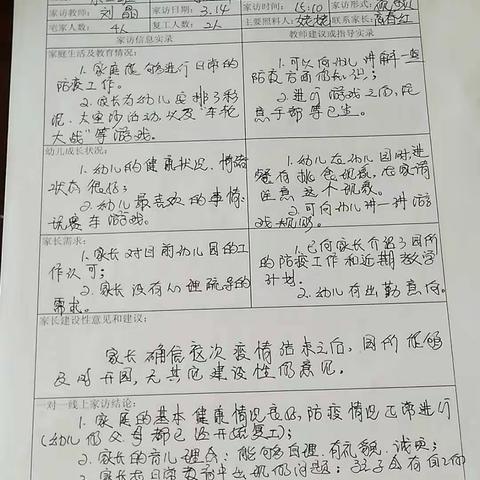 家访教师： 刘晶 家访日期： 3.14 家访时间： 15:10 家访形式：
宅家人数： 4人 复工人数： 2人 主要照料人：姥姥 联系家长：
家访信息实录 教师建议或指导实录
家庭生活及教育情况：
1.家庭能够进行日常的
防疫工作。
2.家长为幼儿安排了彩
泥、太空沙活动以及“车轮
大战”等游戏。
1.可以向幼儿讲解一些
防疫方面的知识；
2.进行游戏之后，注
意手部等卫生。
幼儿成长状况：
1.幼儿的健康状况、情绪
状态很好；
2.幼儿最喜欢的事情
玩赛车游戏。
1.幼儿在幼儿园时进
餐有挑食现象，在家请
注意这个现象。
2.可向幼儿讲一讲游
戏规则。
家长需求：
1.家长对目前幼儿园的工
作认可；
2.家长没有心理疏导的
需求。
1.已向家长介绍了园所
的防疫工作和近期教学
计划。
2.幼儿有出勤意向。
家长建设性意见和建议：
家长确信这次疫情结束之后，园所能够
及时开园，无其它建设性的意见。
一对一线上家访结论：
1.家庭的基本健康情况良好，防疫情况正常进行
(幼儿的父母都已经开始复工)；
2.家长的育儿理念：能够自理、有礼貌、诚实；